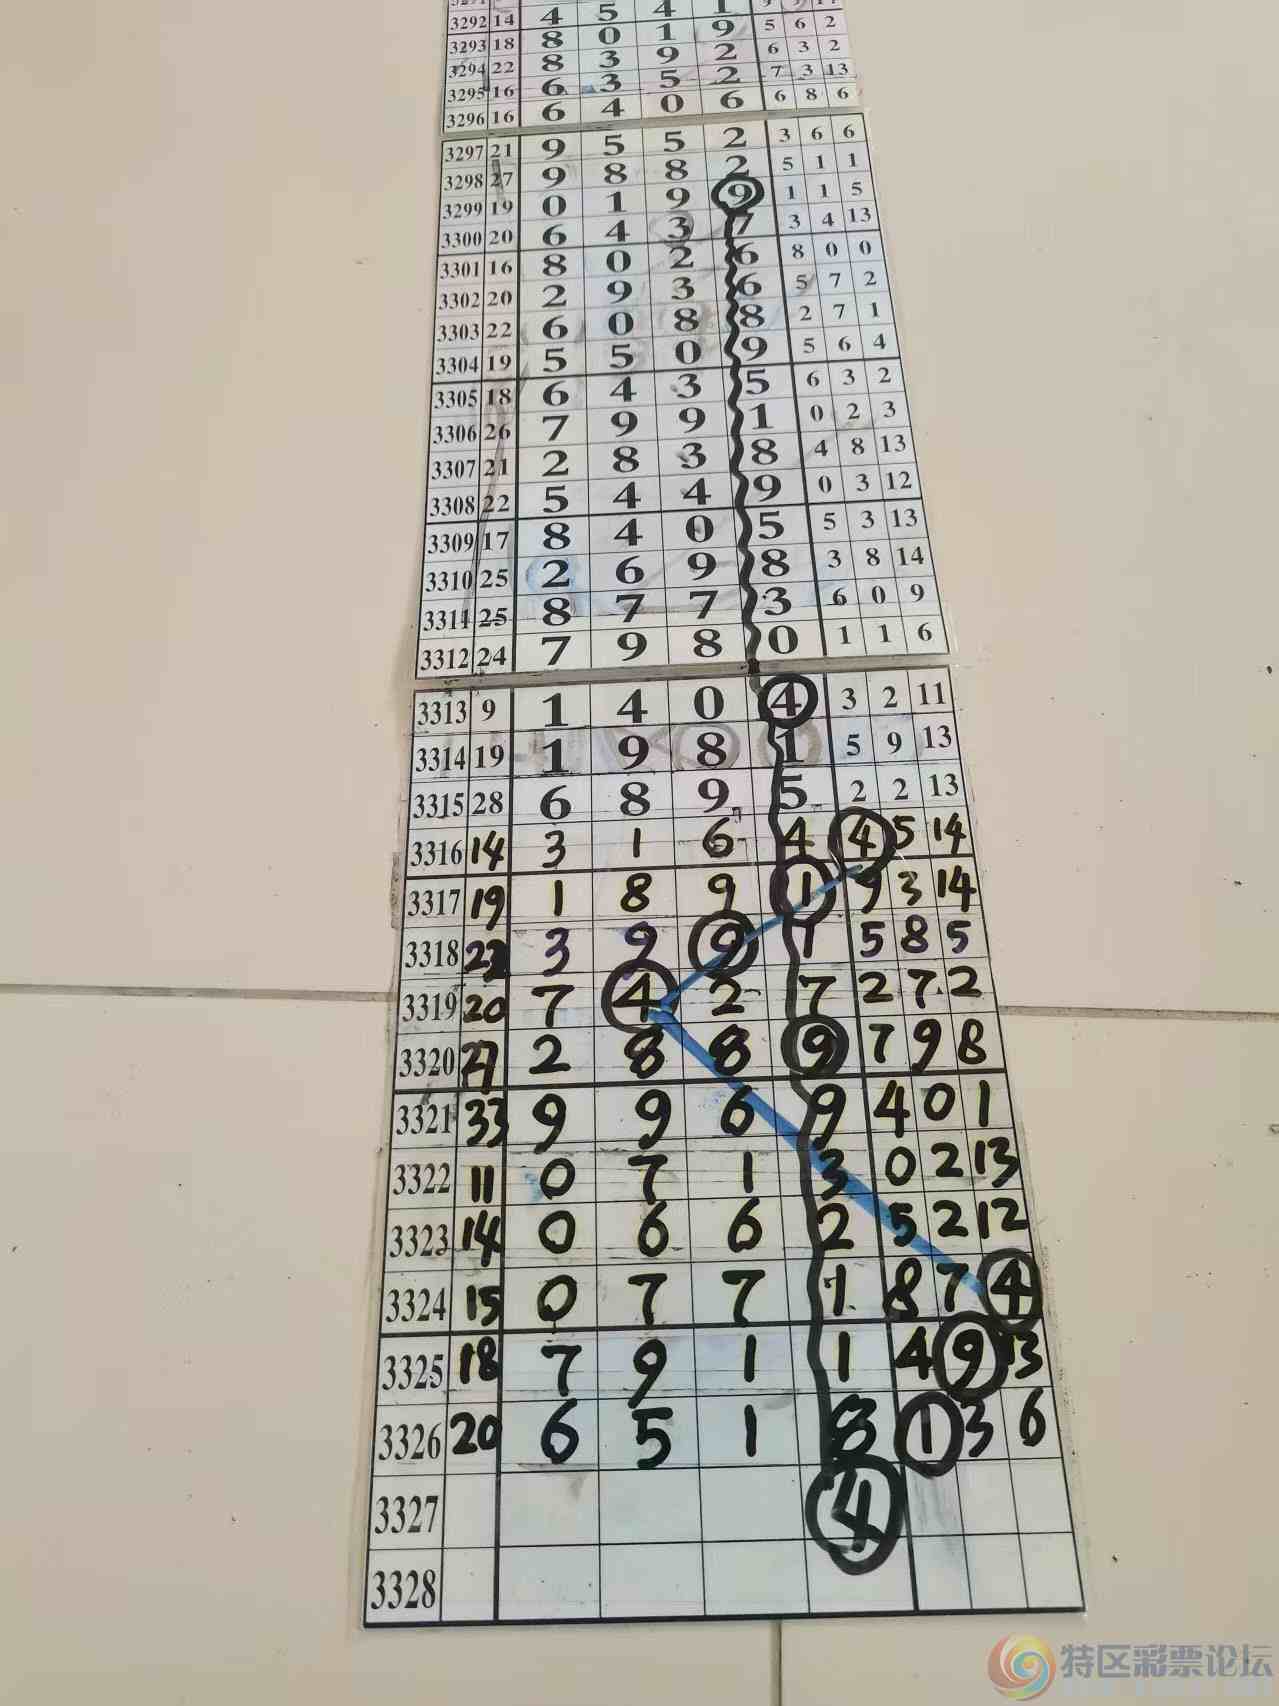 3292 14 4 5 4 1
3293 18 8 0 1 9 5 6 2
3294 22 8 3 9 2 6 3 2
3295 16 6 3 5 2 7 3 13
3296 16 6 4 0 6 6 8 6
3297 21 9 5 5 2 3 6 6
3298 27 9 8 8 2 5 1 1
3299 19 0 1 9 9 1 1 5
3300 20 6 4 3 7 3 4 13
3301 16 8 0 2 6 8 0 0
3302 20 2 9 3 6 5 7 2
3303 22 6 0 8 8 2 7 1
3304 19 5 5 0 9 5 6 4
3305 18 6 4 3 5 6 3 2
3306 26 7 9 9 1 0 2 3
3307 21 2 8 3 8 4 8 13
3308 22 5 4 4 9 0 3 12
3309 17 8 4 0 5 5 3 13
3310 25 2 6 9 8 3 8 14
3311 25 8 7 7 3 6 0 9
3312 24 7 9 8 0 1 1 6
3313 9 1 4 0 4 3 2 11
3314 19 1 9 8 1 5 9 13
3315 28 6 8 9 5 2 2 13
3316 14 3 1 6 4 4 5 14
3317 19 1 8 9 1 9 3 14
3318 23 3 9 9 1 5 8 5
3319 20 7 4 2 7 2 7 2
3320 27 2 8 8 9 7 9 8
3321 33 9 9 6 9 4 0 1
3322 11 0 7 1 3 0 2 13
3323 14 0 6 6 2 5 2 12
3324 15 0 7 7 1 8 7 4
3325 18 7 9 1 1 4 9 13
3326 20 6 5 1 8 1 3 6
3327 4
3328
特区彩票论坛